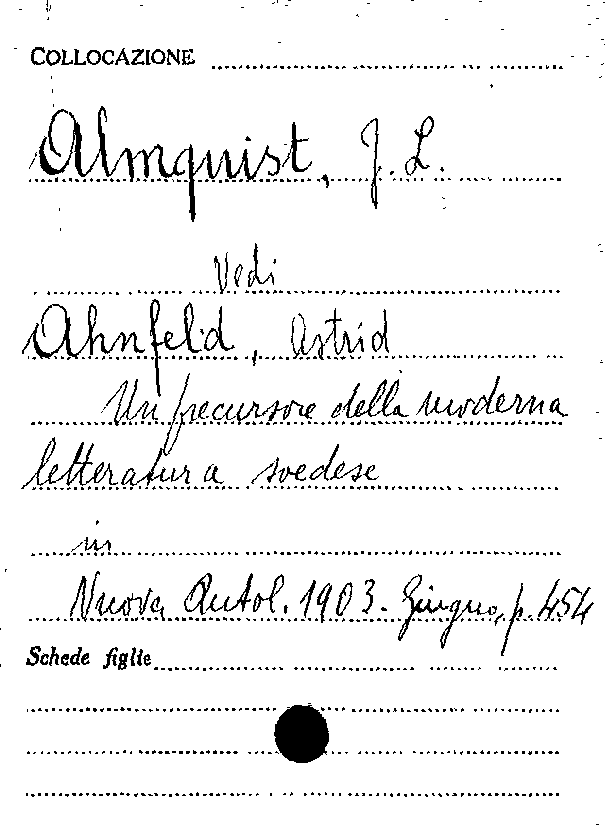 COLLOCAZIONE
Almquist, J. L.
Vedi
Ahnfeld, Astrid
Un precursore della moderna
letteratura svedese
in
Nuova Antol. 1903. Giugno, p. 454
Schede figlie